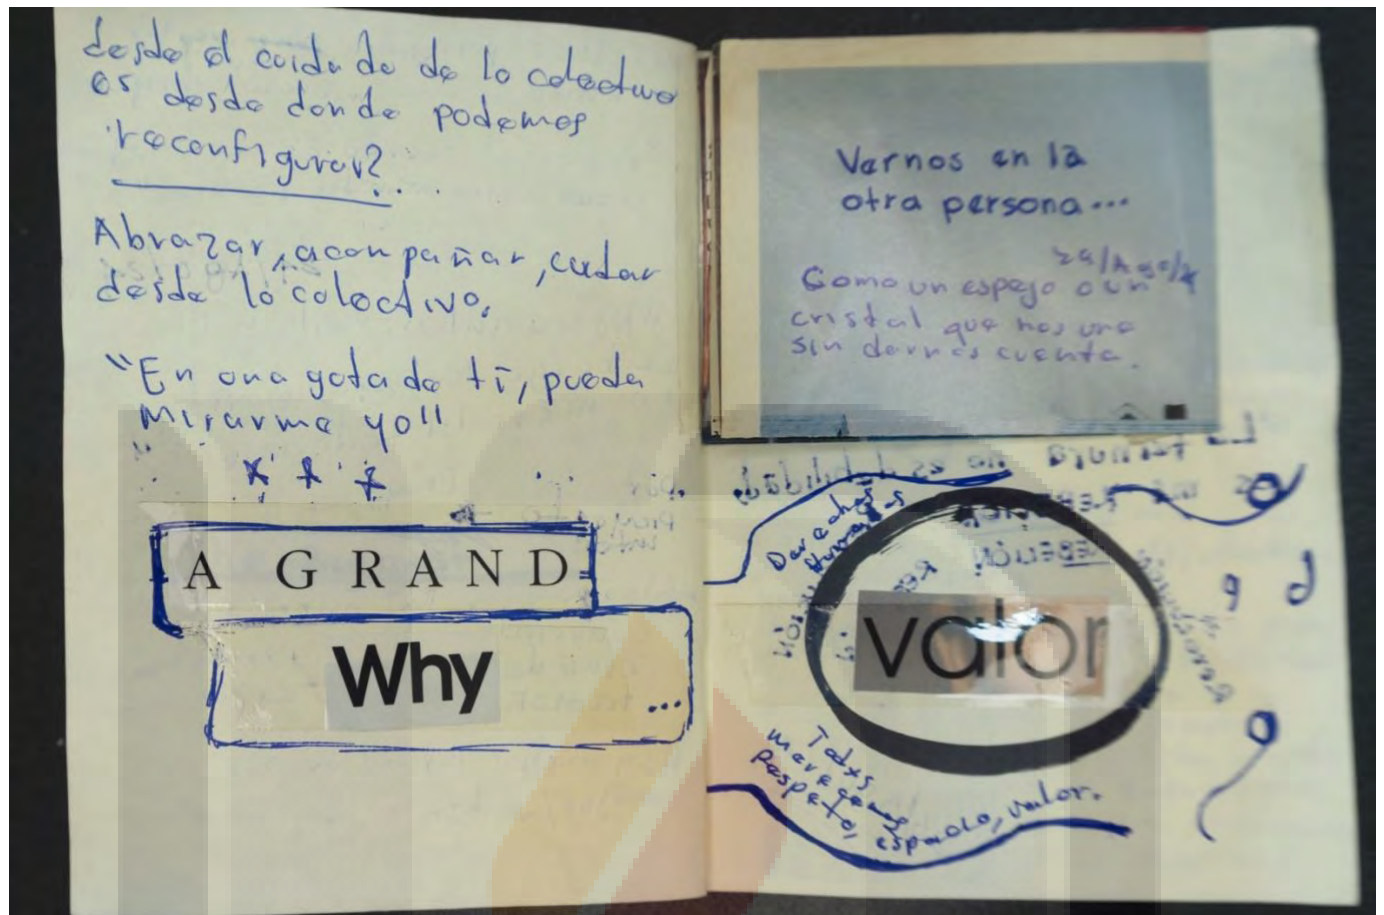 desde el cuidado de lo colectivo
es desde donde podemos
reconfigurar?...
Abrazar, acompañar, cuidar
desde lo colectivo.
"En una gota de tí, puedo
mirarme yo"
A GRAND
Why
...
Vernos en la
otra persona...
Como un espejo o un
cristal que nos une
sin darnos cuenta.
La ternura no es debilidad,
REBELIÓN!
Derechos
Humanos
valor
Todxs
merecemos
respeto, espacio, valor.